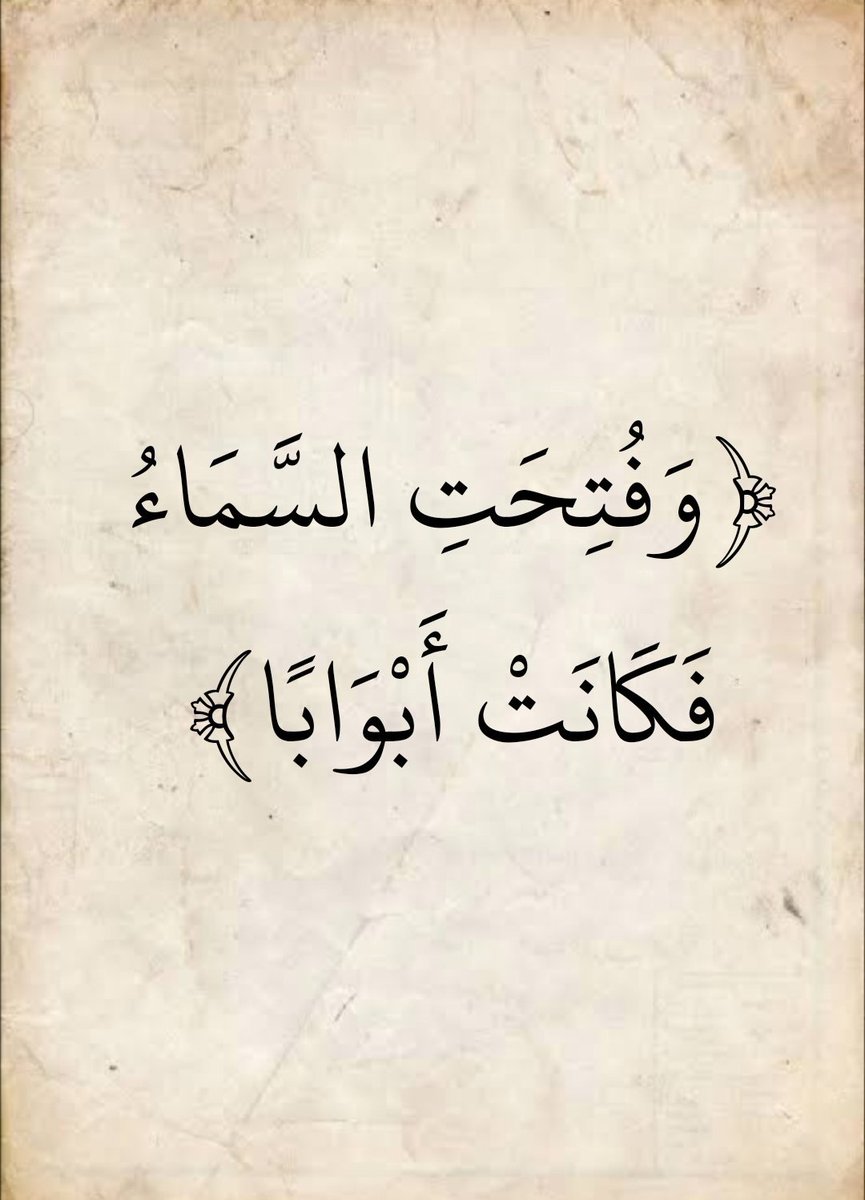 ﴿وَفُتِحَتِ السَّمَاءُ
فَكَانَتْ أَبْوَابًا﴾